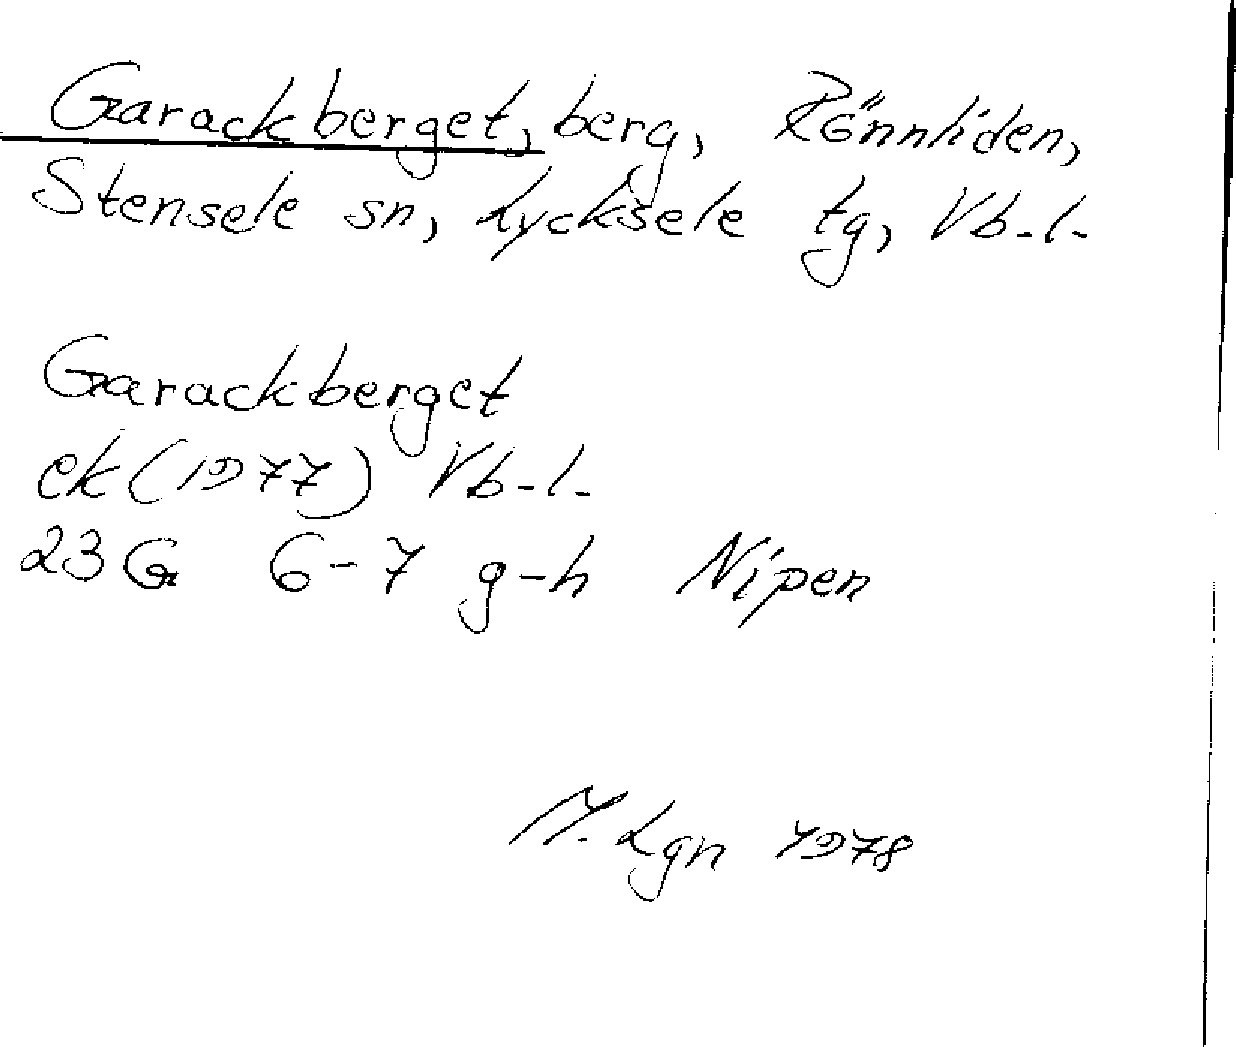 Garackberget, berg, Rönnliden,
Stensele sn, Lycksele tg, Vb-l-
Garackberget
ek (1977) Vb-l-
23G 6-7 g-h Nipen
M. Lgn 1978